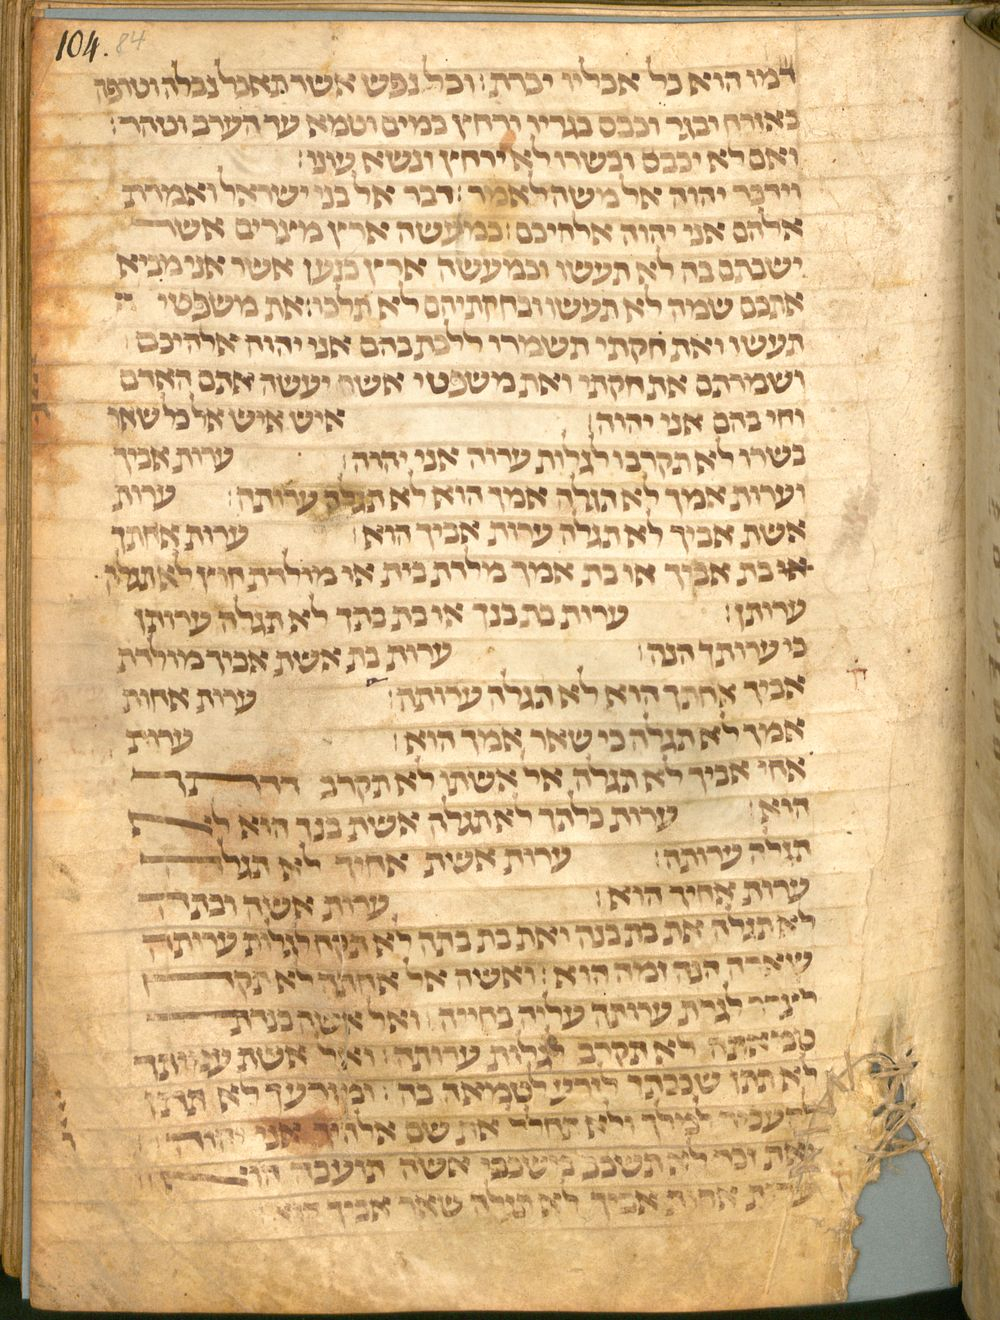 104. 84
דמו הוא כל אכליו יכרת: וכל נפש אשר תאכל נבלה וטרפה
באזרח ובגר וכבס בגדיו ורחץ במים וטמא עד הערב וטהר:
ואם לא יכבס ובשרו לא ירחץ ונשא עונו:
וידבר יהוה אל משה לאמר: דבר אל בני ישראל ואמרת
אלהם אני יהוה אלהיכם: כמעשה ארץ מצרים אשר
ישבתם בה לא תעשו וכמעשה ארץ כנען אשר אני מביא
אתכם שמה לא תעשו ובחקתיהם לא תלכו: את משפטי
תעשו ואת חקתי תשמרו ללכת בהם אני יהוה אלהיכם:
ושמרתם את חקתי ואת משפטי אשר יעשה אתם האדם
וחי בהם אני יהוה: איש איש אל כל שאר
בשרו לא תקרבו לגלות ערוה אני יהוה: ערות אביך
וערות אמך לא תגלה אמך הוא לא תגלה ערותה: ערות
אשת אביך לא תגלה ערות אביך הוא: ערות אחתך
או בת אביך או בת אמך מולדת בית או מולדת חוץ לא תגלה
ערותן: ערות בת בנך או בת בתך לא תגלה ערותן
כי ערותך הנה: ערות בת אשת אביך מולדת
אביך אחתך הוא לא תגלה ערותה: ערות אחות
אמך לא תגלה כי שאר אמך הוא: ערות
אחי אביך לא תגלה אל אשתו לא תקרב דדתך
הוא: ערות כלתך לא תגלה אשת בנך הוא לא
תגלה ערותה: ערות אשת אחיך לא תגלה
ערות אחיך הוא: ערות אשה ובתה
לא תגלה את בת בנה ואת בת בתה לא תקח לגלות ערותה
שארה הנה זמה הוא: ואשה אל אחתה לא תקח
לצרר לגלת ערותה עליה בחייה: ואל אשה בנדת
טמאתה לא תקרב לגלות ערותה: ואל אשת עמיתך
לא תתן שכבתך לזרע לטמאה בה: ומזרעך לא תתן
להעביר למלך ולא תחלל את שם אלהיך אני יהוה:
ואת זכר לא תשכב משכבי אשה תועבה הוא
ערות אחות אביך לא תגלה שאר אביך הוא